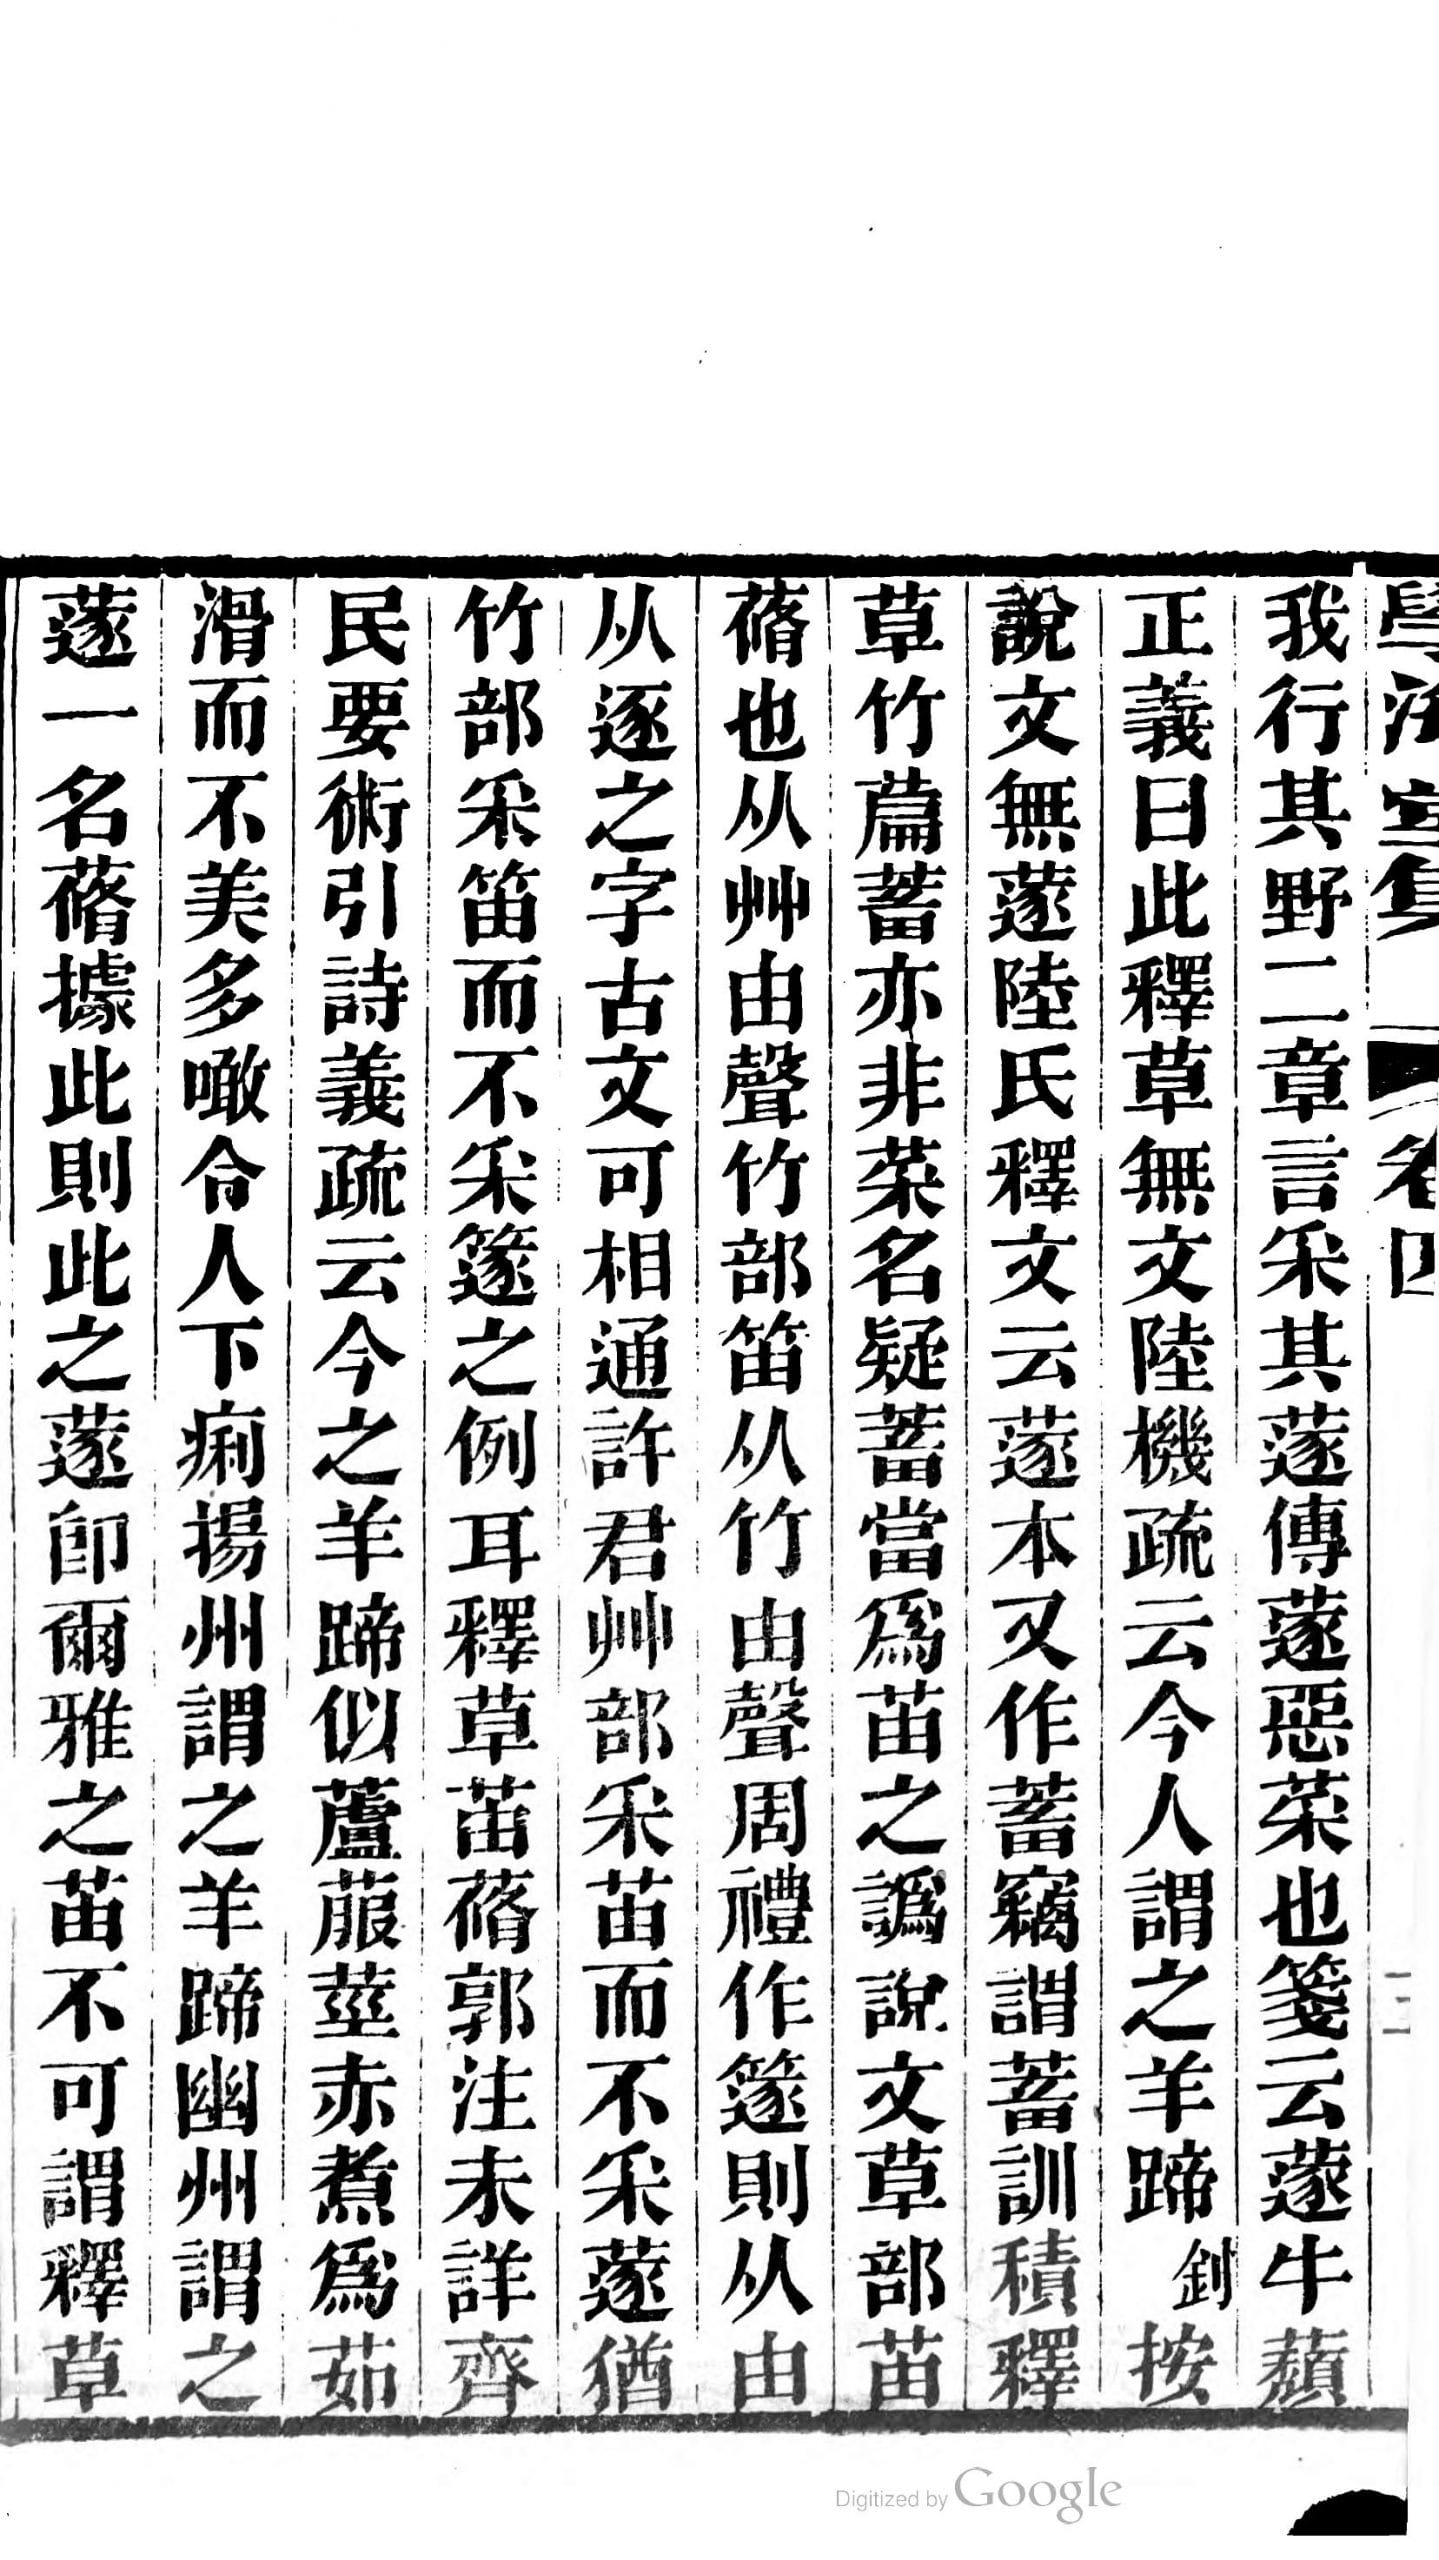 學治堂集 卷四
我行其野二章言采其蓫傳蓫惡菜也箋云蓫牛蘈
正義曰此釋草無文陸機疏云今人謂之羊蹄釗按
說文無蓫陸氏釋文云蓫本又作蓄竊謂蓄訓積釋
草竹萹蓄亦非菜名疑蓄當爲苗之譌說文草部苗
蓨也从艸由聲竹部笛从竹由聲周禮作篴則从由
从逐之字古文可相通許君艸部采苗而不采蓫猶
竹部采笛而不采篴之例耳釋草苖蓨郭注未詳齊
民要術引詩義疏云今之羊蹄似蘆菔莖赤煮爲茹
滑而不美多噉令人下痢揚州謂之羊蹄幽州謂之
蓫一名蓨據此則此之蓫卽爾雅之苗不可謂釋草
Digitized by Google